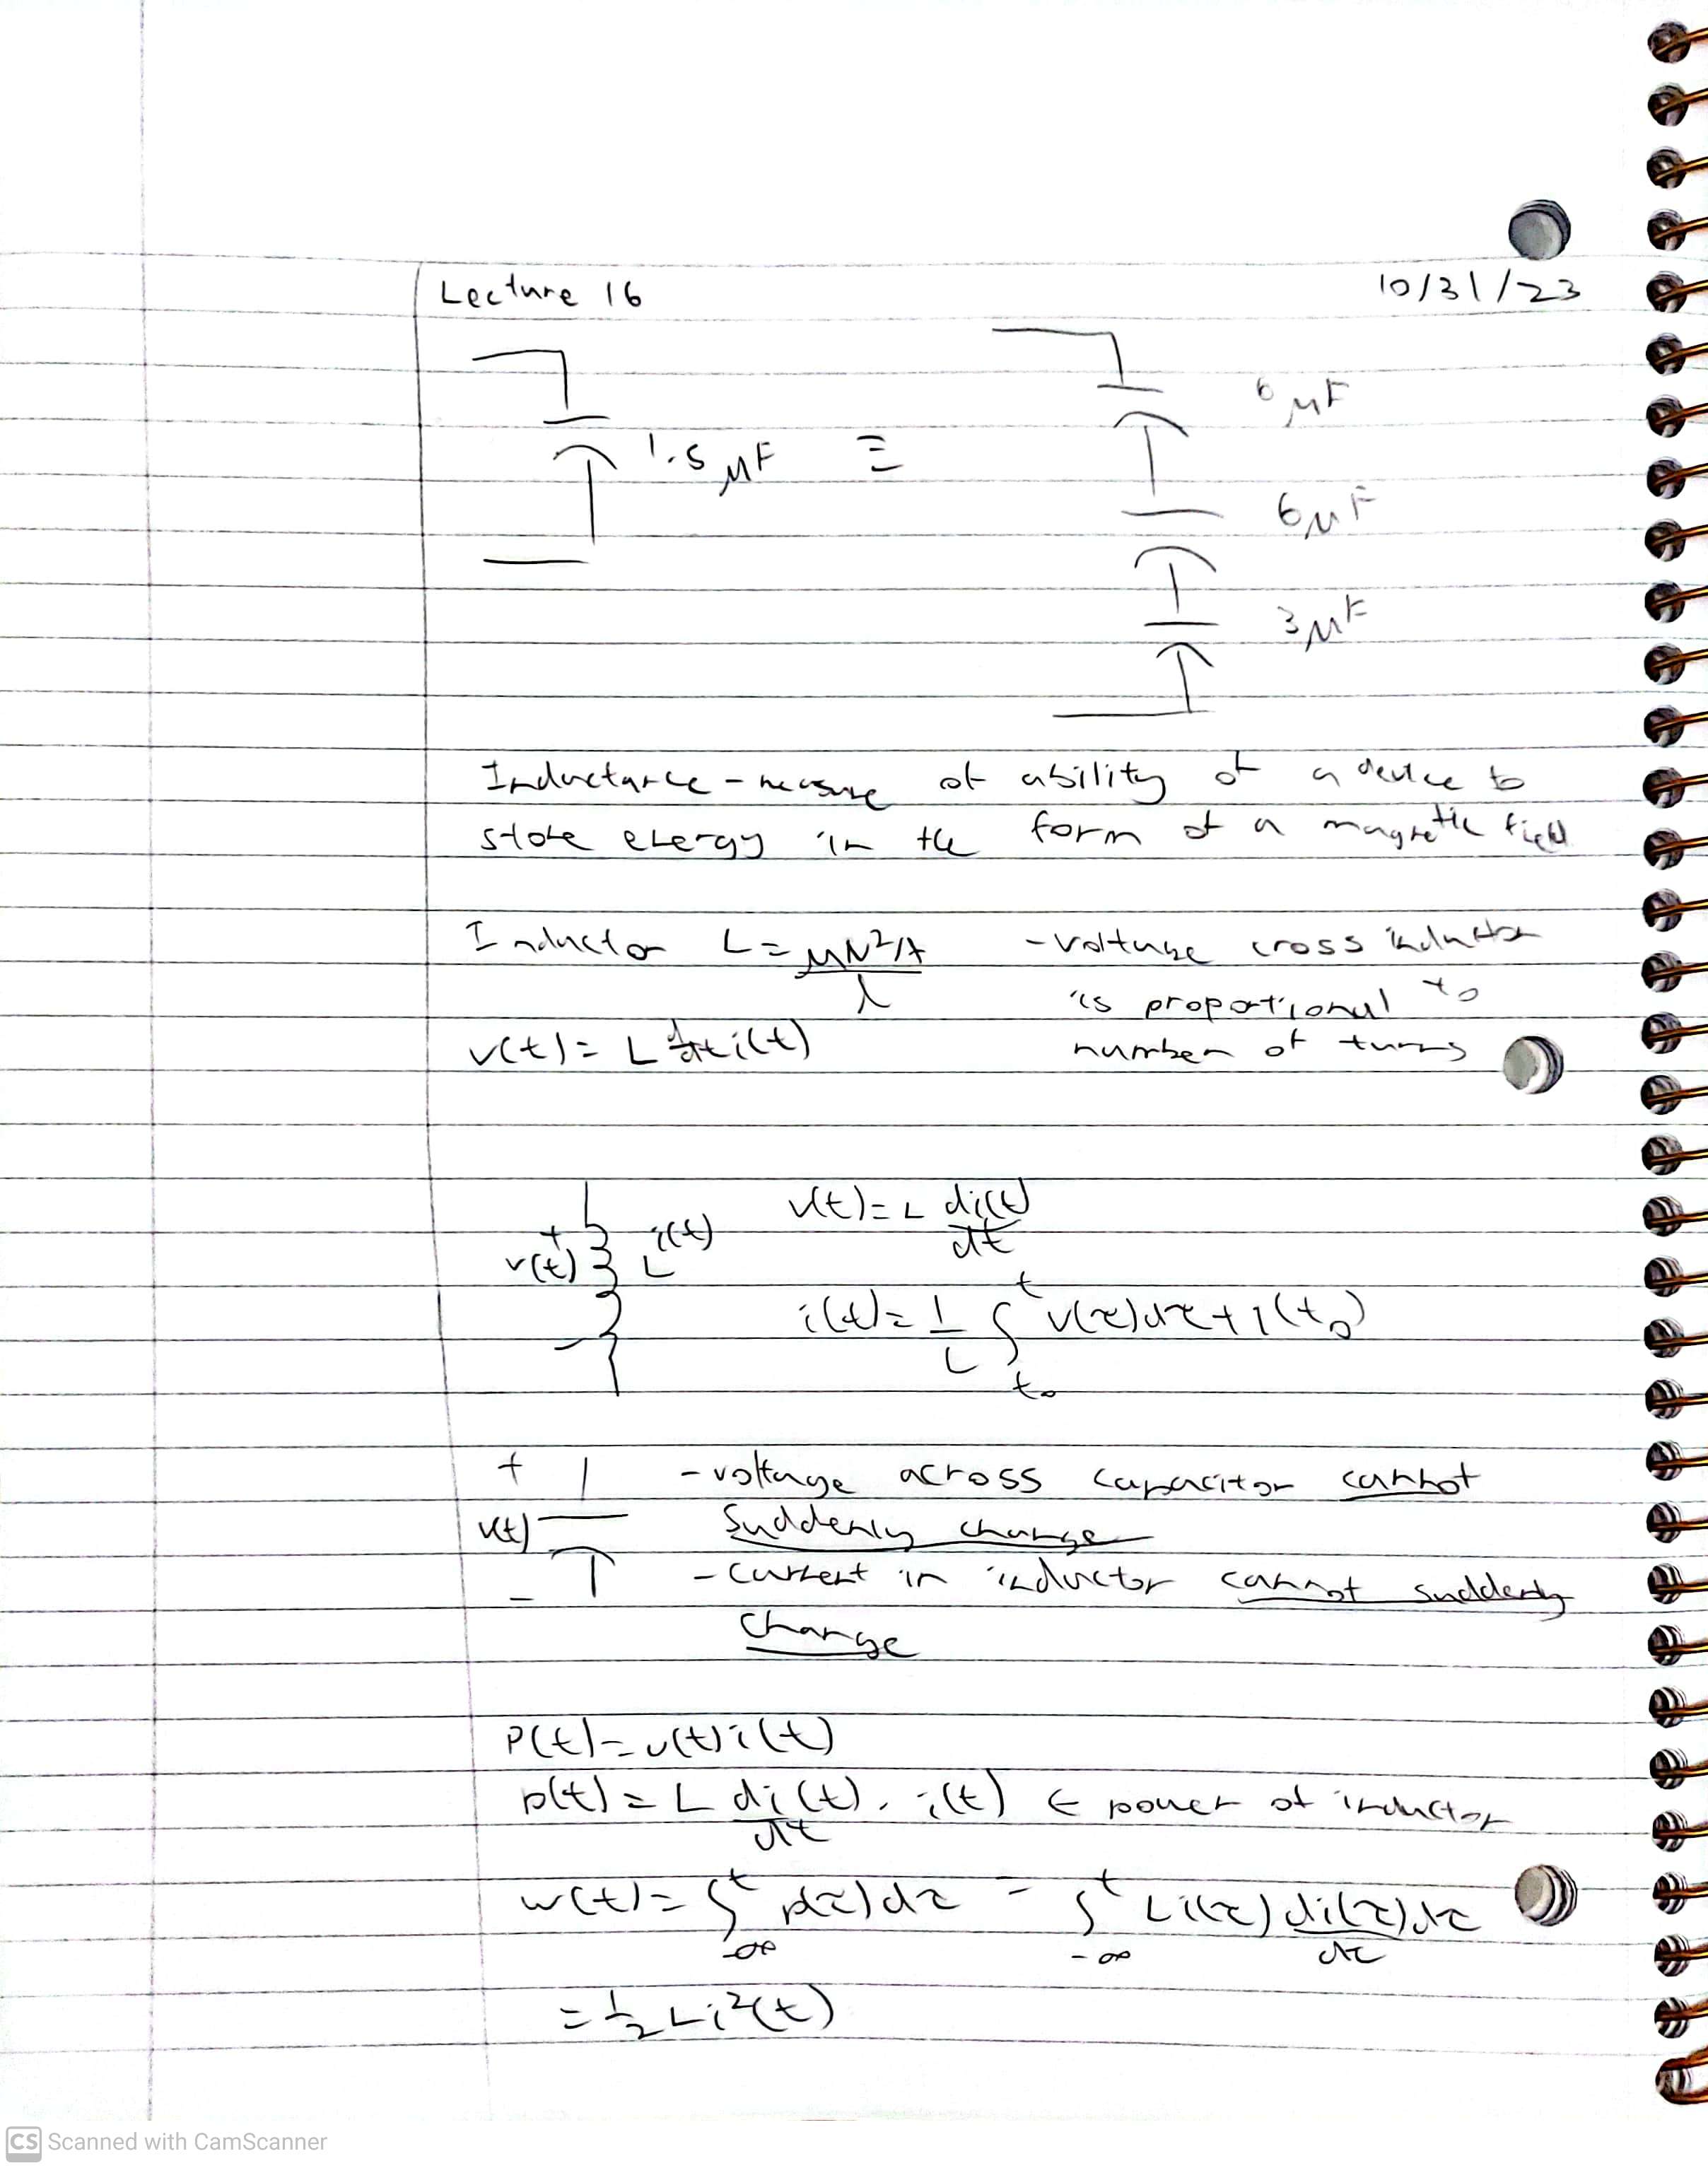 Lecture 16
10/31/23
1.5 μF ≡
6 μF
6 μF
3 μF
Inductance - measure of ability of a device to
store energy in the form of a magnetic field
Inductor L = μN²A / l
- voltage cross inductor
is proportional to
number of turns
v(t) = L d/dt i(t)
+ v(t) L i(t) -
v(t) = L di(t)/dt
i(t) = 1/L ∫_{t₀}^{t} v(τ)dτ + i(t₀)
+ v(t) -
- voltage across capacitor cannot
suddenly change
- current in inductor cannot suddenly
change
P(t) = v(t) i(t)
p(t) = L di(t)/dt . i(t) ← power of inductor
w(t) = ∫_{-∞}^{t} p(τ)dτ = ∫_{-∞}^{t} L i(τ) di(τ)/dτ dτ
= 1/2 L i²(t)
CS Scanned with CamScanner